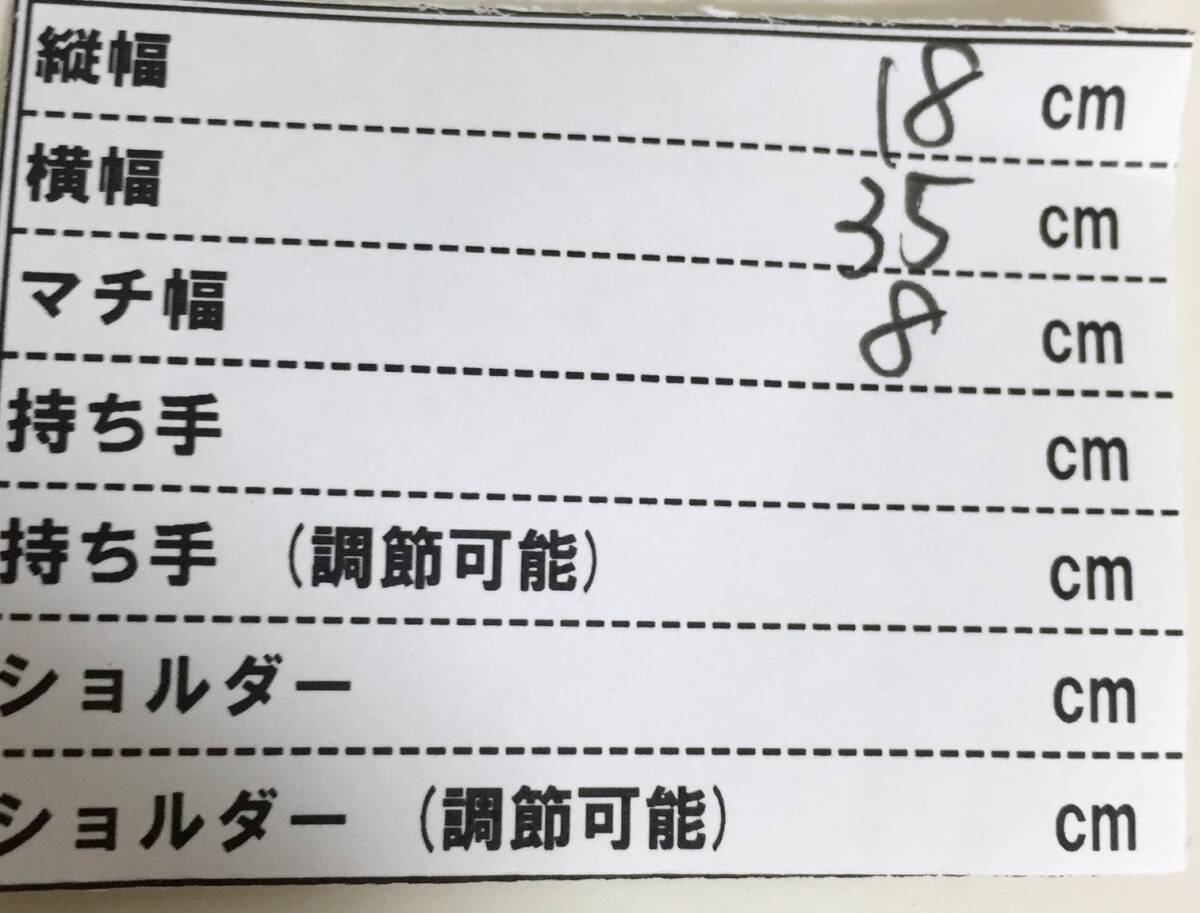 縦幅 18 cm
横幅 35 cm
マチ幅 8 cm
持ち手 cm
持ち手 (調節可能) cm
ショルダー cm
ショルダー (調節可能) cm